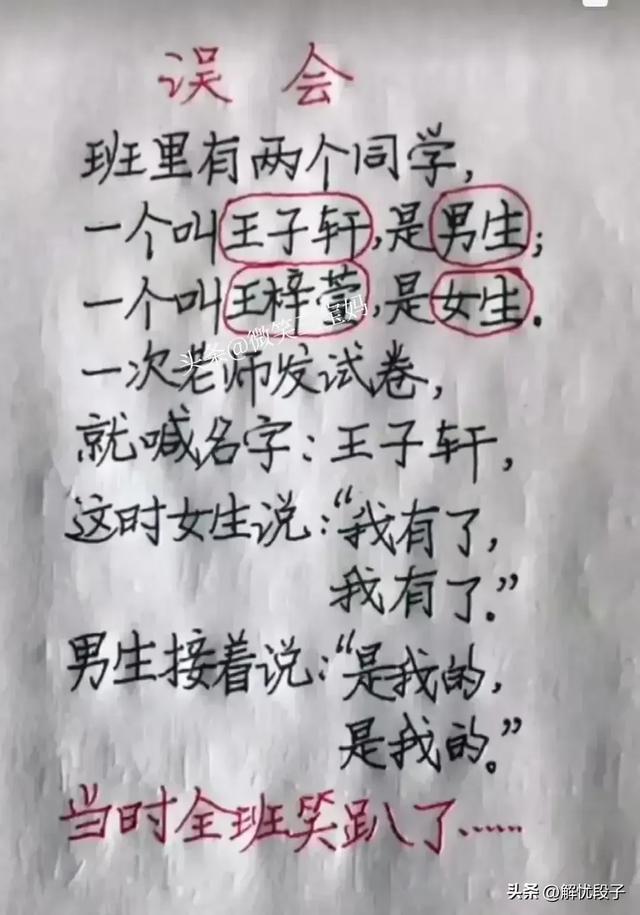 误会
班里有两个同学,
一个叫王子轩,是男生;
一个叫王梓萱,是女生.
头条@微笑
一次老师发试卷,
就喊名字:王子轩,
这时女生说:“我有了,
我有了.”
男生接着说:“是我的,
是我的.”
当时全班笑趴了......
头条 @解忧段子